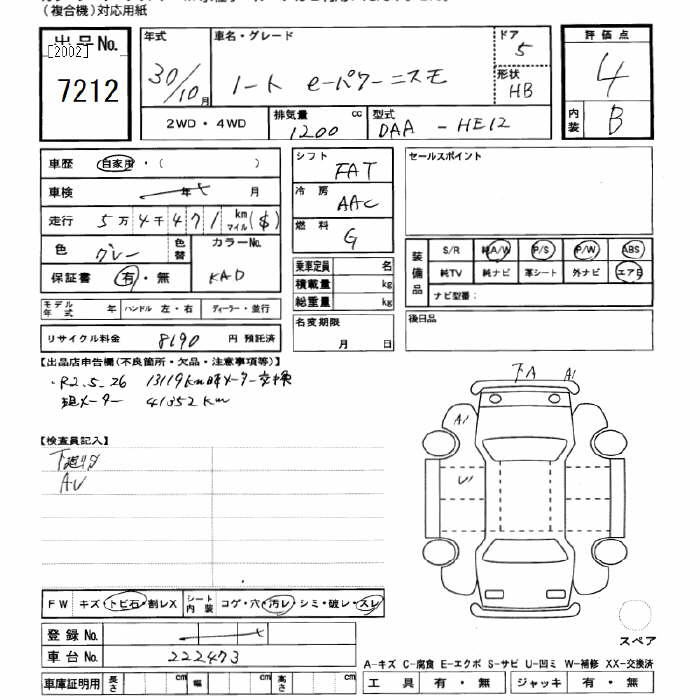 （複合機）対応用紙
出品No.
[2002]
7212
年式
30/10月
車名・グレード
ノート e-パワーニスモ
ドア
5
形状
HB
評価点
4
内装
B
2WD・4WD
排気量
1200 cc
型式
DAA - HE12
車歴 自家用・（ ）
車検 年 月
走行 5万4千471 km マイル ($)
色 グレー 色替
カラーNo.
KAD
保証書 有・無
モデル年式 年 ハンドル 左・右 ディーラー・並行
リサイクル料金 8190 円 預託済
シフト
FAT
冷房
AAC
燃料
G
乗車定員 名
積載量 kg
総重量 kg
名変期限
月 日
セールスポイント
装備品
S/R 純A/W P/S P/W ABS
純TV 純ナビ 革シート 外ナビ エアB
ナビ型番：
後日品
【出品店申告欄(不良箇所・欠品・注意事項等)】
・R2.5.26 13119km時メーター交換
現メーター 41352km
【検査員記入】
下廻りサ
AU
下A A1
A1
U
FW キズ・トビ石・割レX
シート内装 コゲ・穴・汚レ・シミ・破レ・スレ
登録No.
車台No. 222473
車庫証明用 長さ cm 幅 cm 高さ cm
スペア
A−キズ C−腐食 E−エクボ S−サビ U−凹ミ W−補修 XX−交換済
工具 有・無 ジャッキ 有・無